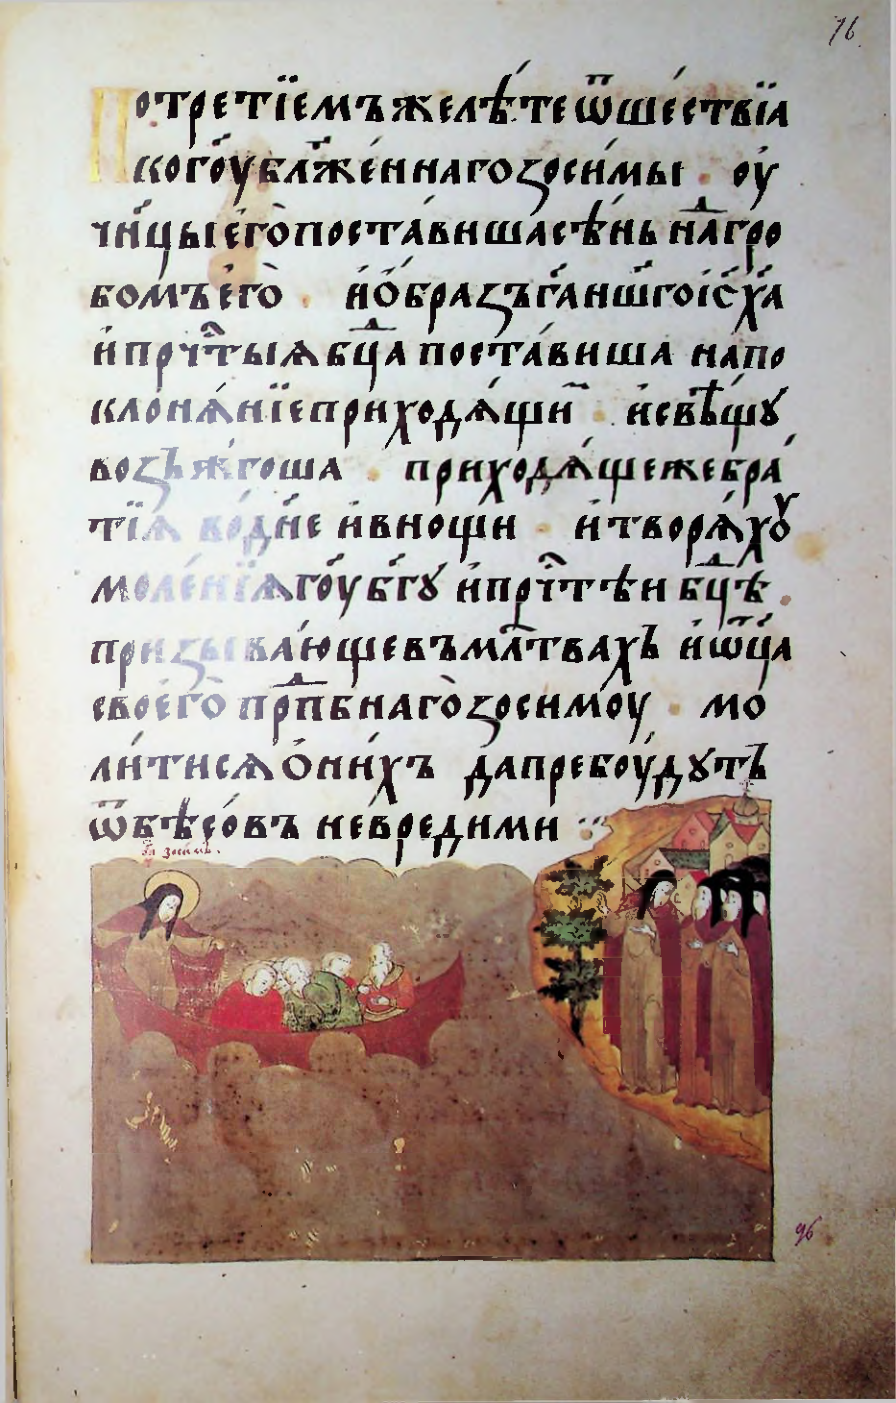 76
Потретїемъжелѣ́теѿше́ствїѧ
когоу̀блж҃е́ннагоꙁоси́мы . оу҆
чн҃цыегѡ̀поста́вишасѣ́нь на́гро
бомъегò . и҆ѻ҆́браꙁъга҃ нш҃гоі҆с҃х҃а
и҆прчⷭ҇тыѧбц҃а поста́виша на́по
клонѧ́нїеприходѧ́щиⷨ . и҆свѣщу
воꙁъжѧ́гоша . приходѧ́щежебра́
тїѧ во́дне и҆вно́щи . и҆творѧ́хꙋ
моле́нїѧгоу҃ бг҃ꙋ и҆прчⷭ҇тѣи бц҃ѣ .
приꙁыва́ющевъмл҃твахъ и҆ѿц҃а
своегò прⷣпбнагòꙁосимоу . мо
ли́тисѧѻ҆ни́хъ дапребоу́дꙋтъ
ѿбѣсо́въ невредими :·
ст҃ы зосимъ.
96